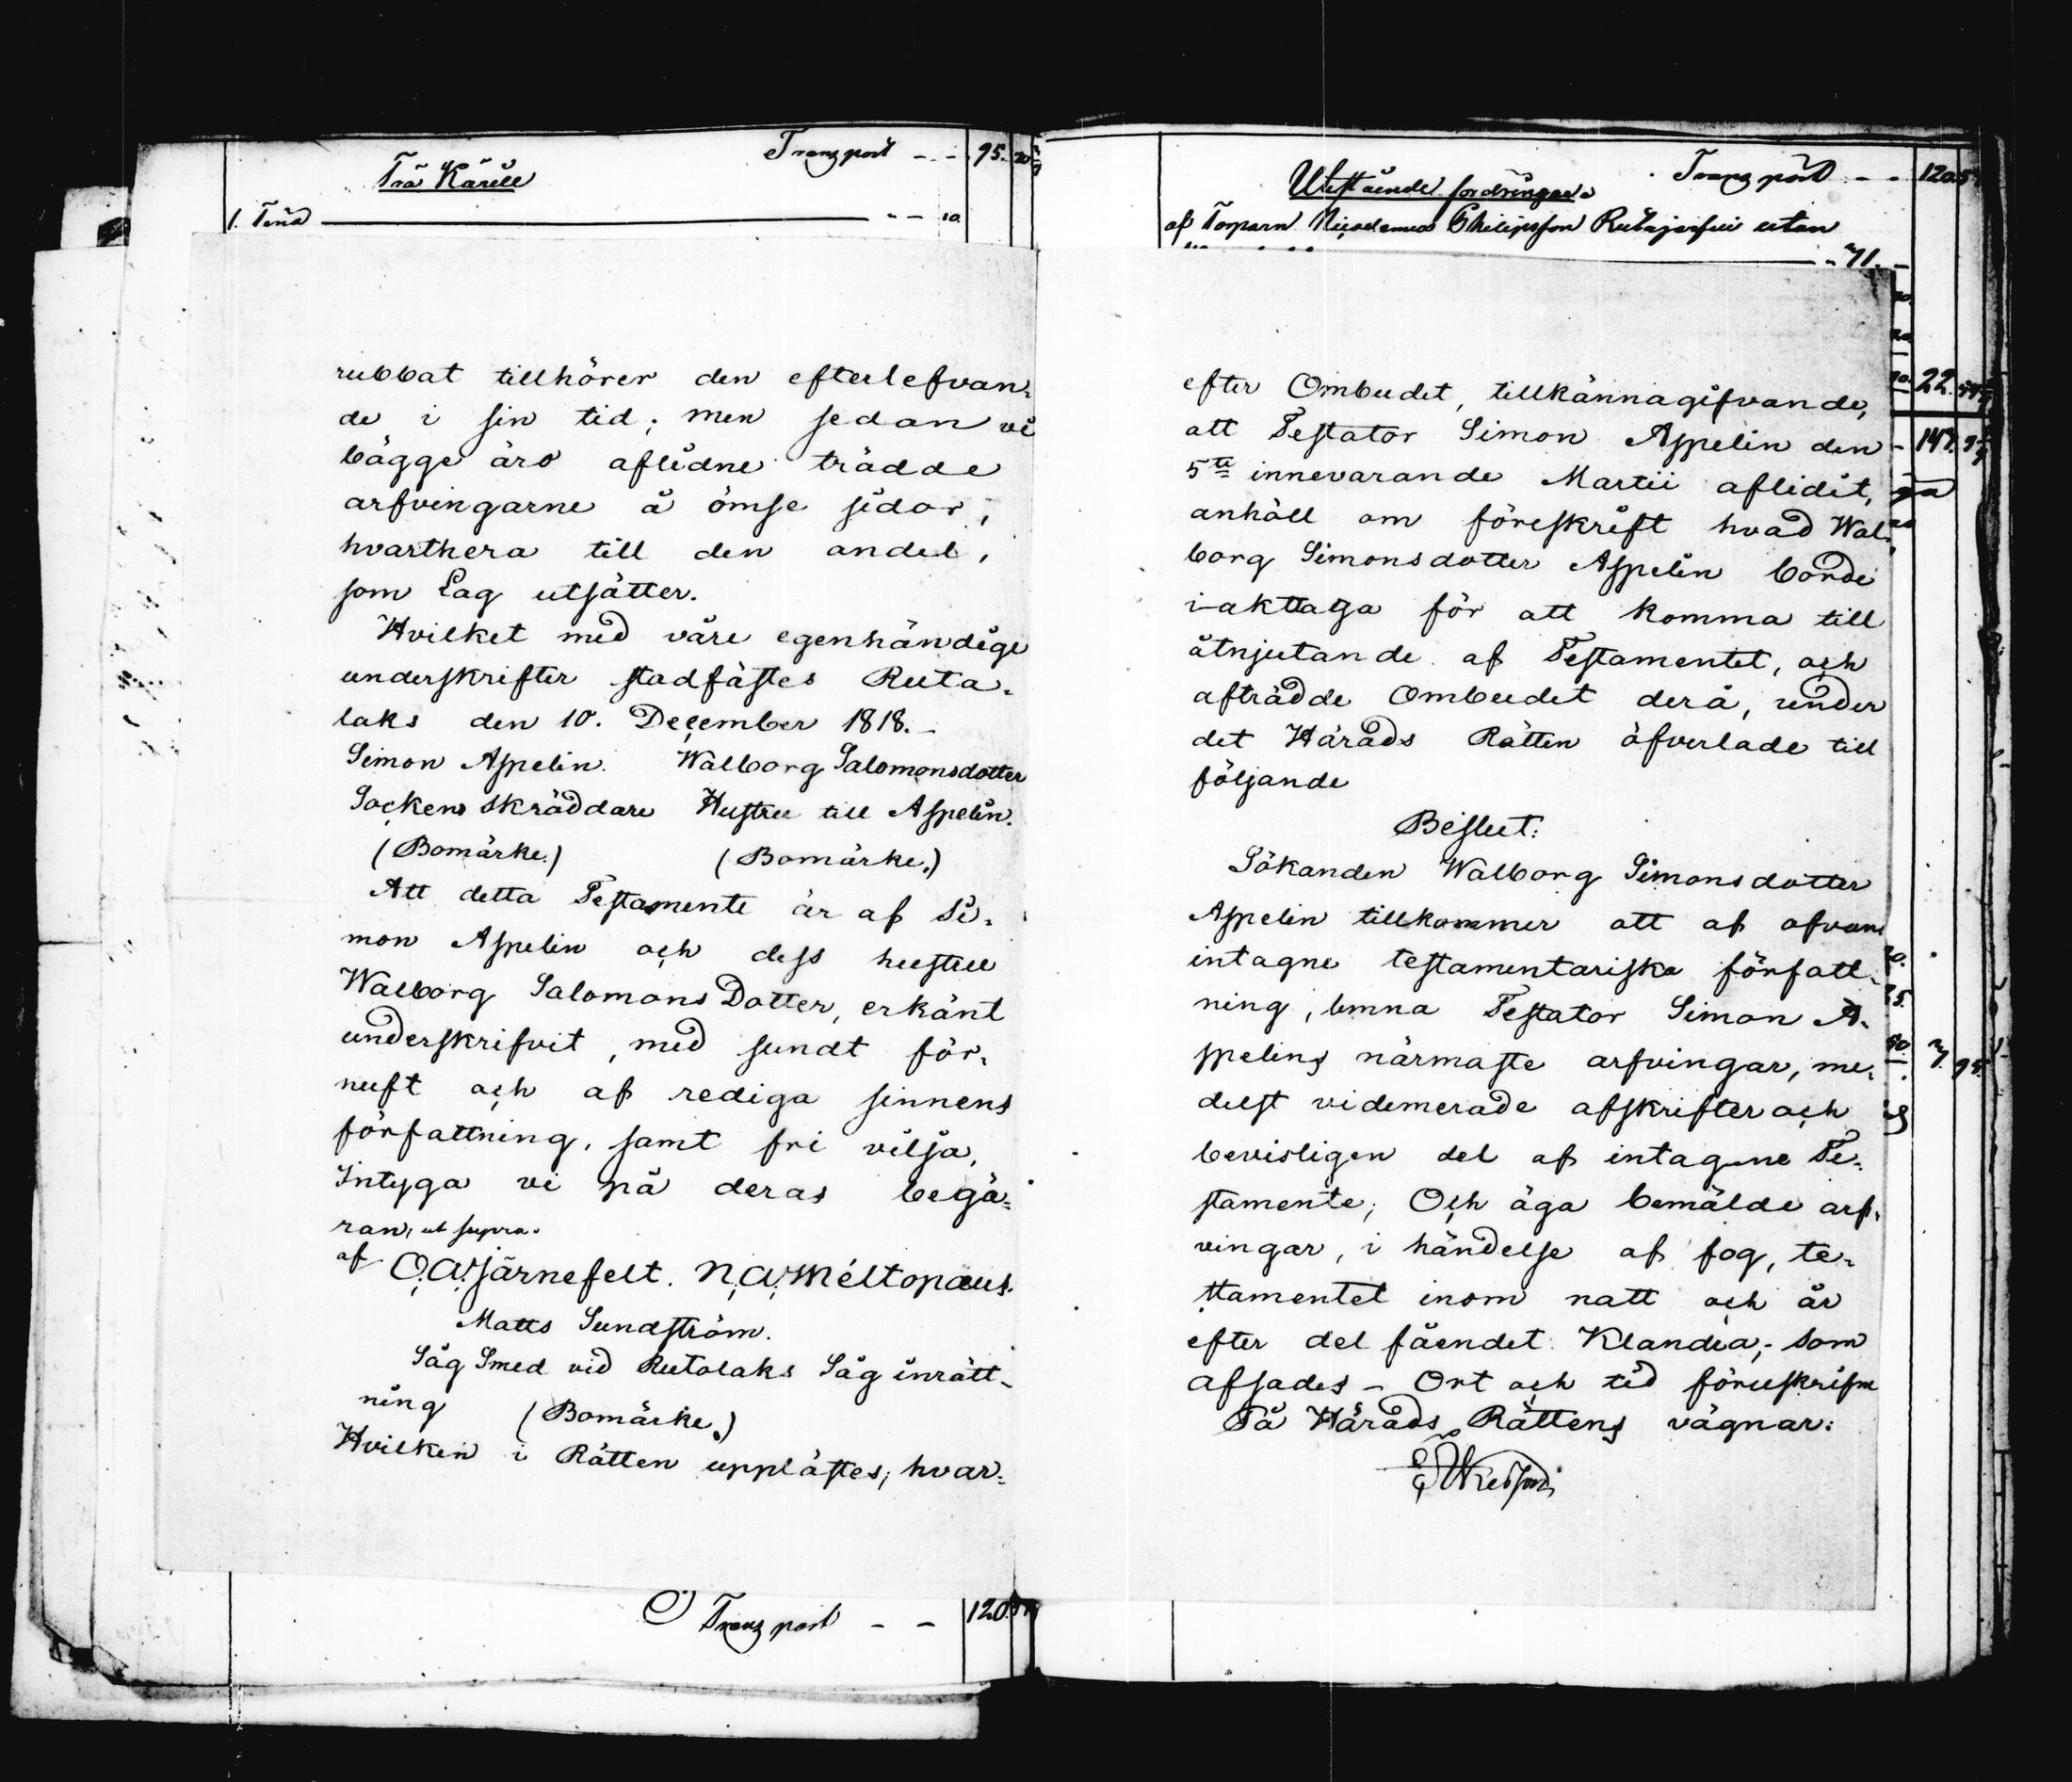 Transport - - 95. 20
Trä Kärill
1. Tina - - 10
rubbat tillhörer den efterlefvan-
de i sin tid; men sedan vi
bägge äro aflidne trädde
arfvingarne å ömse sidor,
hvarthera till den andel,
som Lag utsätter.
Hvilket med våre egenhändige
underskrifter stadfästes Ruta-
laks den 10. December 1818. -
Simon Aspelin. Walborg Salomonsdotter
Sockens Skräddare Hustru till Aspelin.
(Bomärke.) (Bomärke.)
Att detta Testamente är af Si-
mon Aspelin och dess hustru
Walborg Salomons Dotter, erkänt
underskrifvit, med sundt för-
nuft och af rediga sinnens
författning, samt fri vilja,
Intyga vi på deras begä-
ran, ut supra.
af O. A. Järnefelt. N. A. Méltopaus.
Matts Sundström.
Såg Smed vid Rutolaks Såg inrätt-
ning (Bomärke.)
Hvilken i Rätten upplästes; hvar-
Transport - - 120.
Transport - - 120.
Utestående fordringar
af Torparn Nicodemus Philipsson Rutajerfui utan
71. -
22.
147.
efter Ombudet, tillkännagifvande,
att Testator Simon Aspelin den
5te innevarande Martii aflidit,
anhöll om föreskrift hvad Wal-
borg Simonsdotter Aspelin borde
i-akttaga för att komma till
åtnjutande af Testamentet, och
afträdde Ombudet derå, under
det Härads Rätten öfverlade till
följande
Beslut:
Sökanden Walborg Simonsdotter
Aspelin tillkommer att af ofvan
intagne testamentariska författ-
ning, lemna Testator Simon A-
spelins närmaste arfvingar, me-
delst videmerade afskrifter och
bevisligen del af intagne Te-
stamente; Och äga bemälde arf-
vingar, i händelse af fog, te-
stamentet inom natt och år
efter del fåendet Klandra; som
afsades - Ort och tid föruskrifne
På Härads Rättens vägnar: